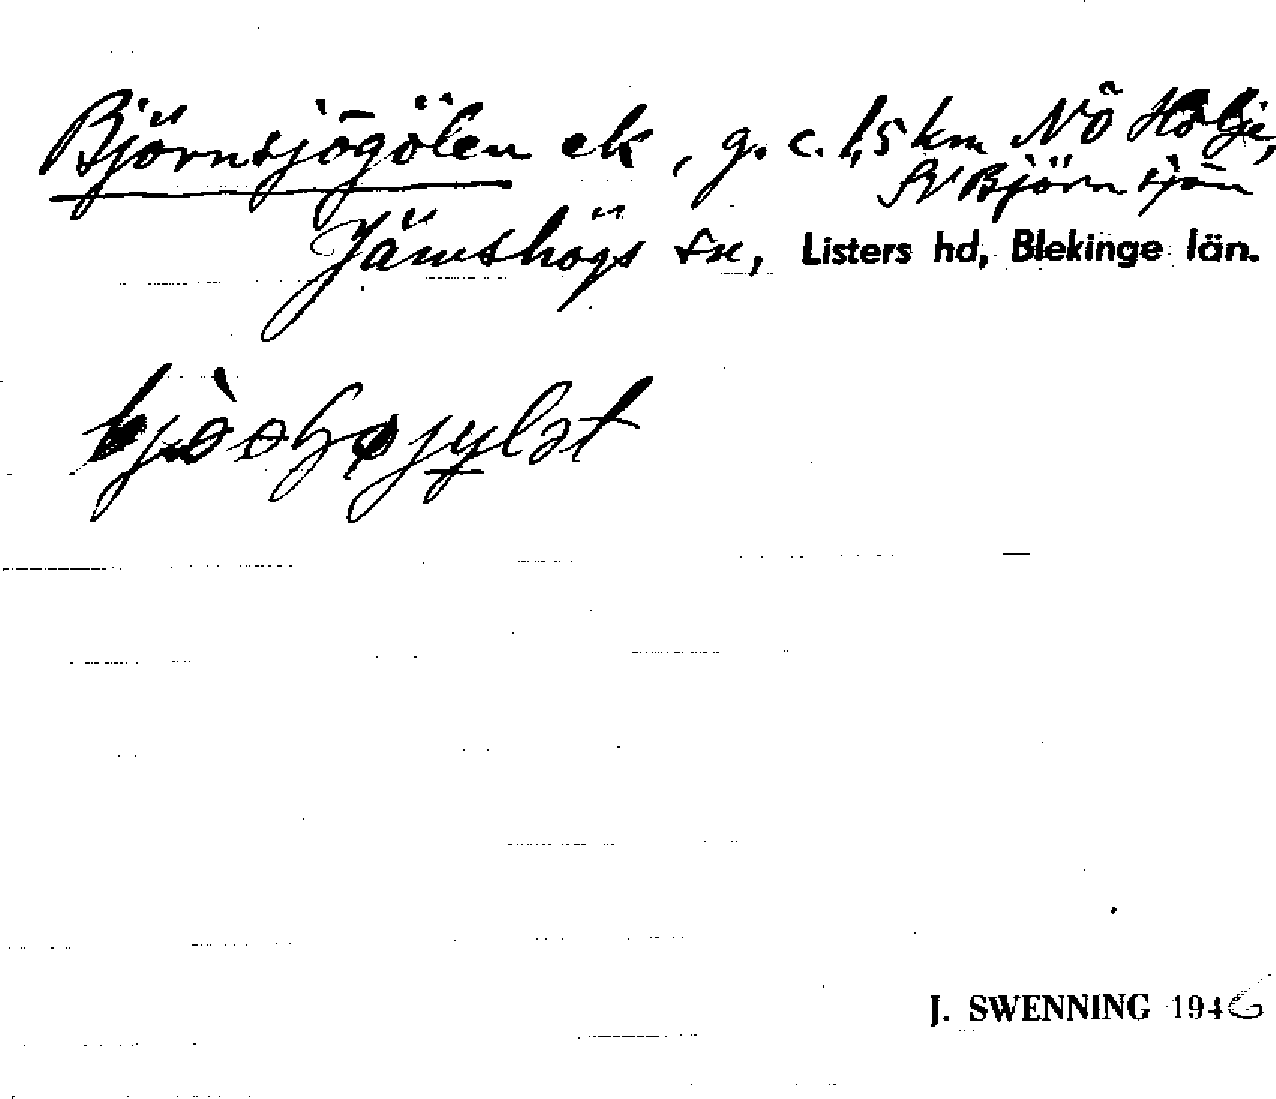 Björnsjögölen ek, g. c. 1,5 km NÖ Hölje,
SV Björnsjön
Jämshögs sn, Listers hd, Blekinge län.
J. SWENNING 1946